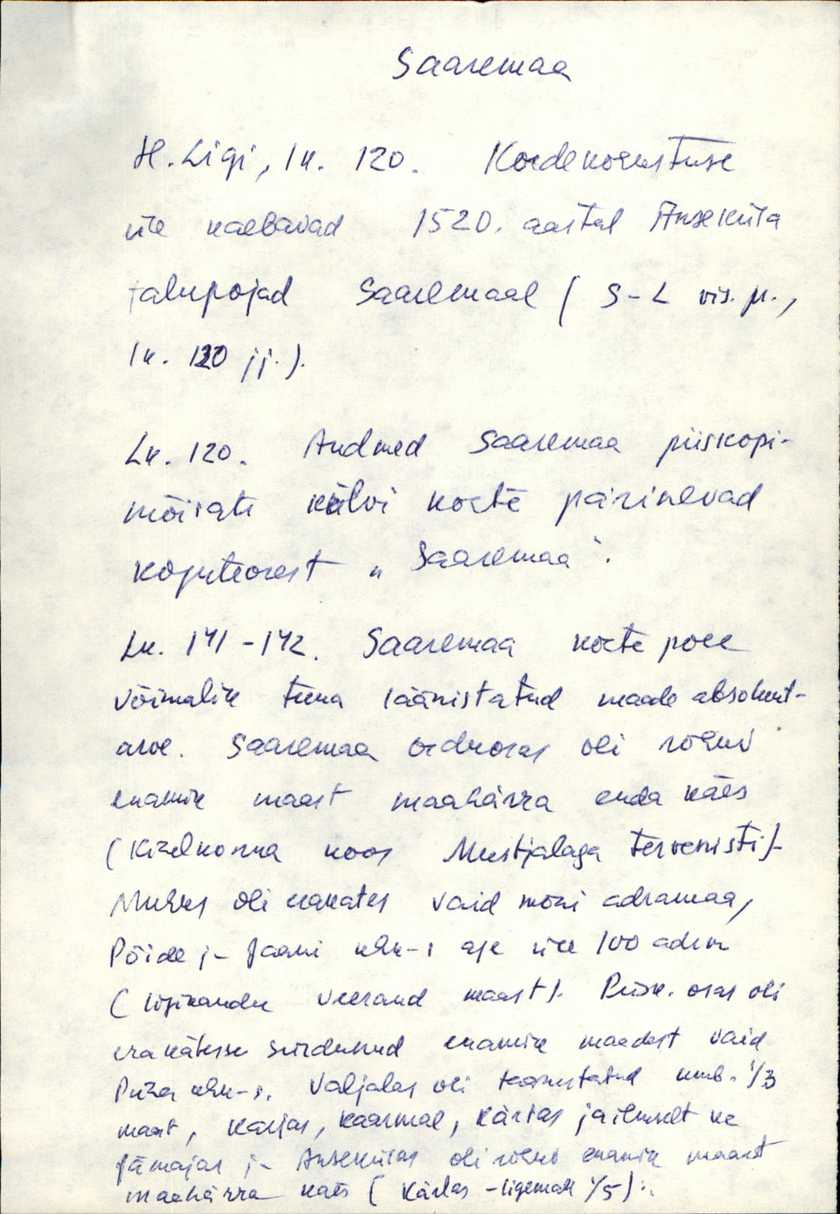 Saaremaa
H. Ligi, lk. 120. Kordekohustuse
üle kaebavad 1520. aastal Anseküla
talupojad Saaremaal (S-L vis. pr.,
lk. 120 jj.).
Lk. 120. Andmed Saaremaa piiskopi-
mõisate külvi kohta pärinevad
koguteosest „Saaremaa".
Lk. 141-142. Saaremaa kohta pole
võimalik tuua läänistatud maade absoluut-
arve. Saaremaa orduosas oli rõhuv
enamik maast maahärra enda käes
(Kihelkonna koos Mustjalaga tervenisti).
Muhus oli erakätes vaid mõni adramaa,
Pöide ja Jaani khk-s aga üle 100 adra
(ligikaudu veerand maast). Piisk. osas oli
erakätesse siirdunud enamik maadest vaid
Püha khk-s. Valjalas oli läänistatud umb. 1/3
maast, Karjas, Kaarmal, Kärlas ja ilmselt ka
Jämajas ja Ansekülas oli rõhuv enamik maast
maahärra käes (Kärlas - ligemale 1/5).